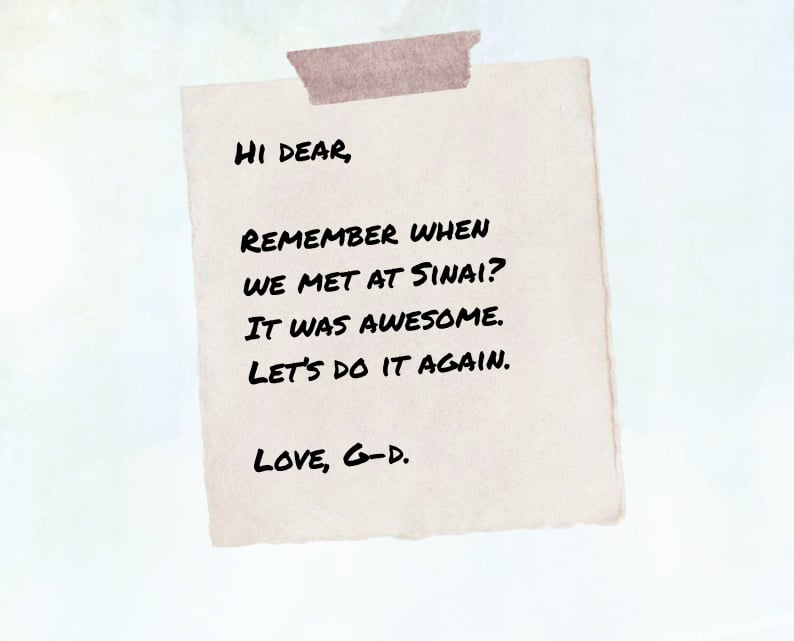 Hi dear,
Remember when
we met at Sinai?
It was awesome.
Let's do it again.
Love, G-d.